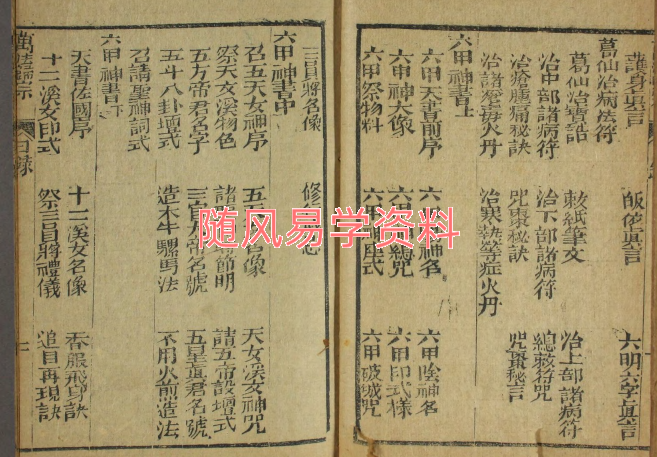 護身真言　皈依真言　六明六字真言
葛仙治病法符
葛仙治寶誥　敕紙筆文　治上部諸病符
治中部諸病符　治下部諸病符　總敕符咒
治瘡腫痛秘訣　咒棗秘訣　咒棗秘言
治諸瘡毒火丹　治寒熱等症火丹
六甲神書上
六甲天書前序　六甲神名　六甲陰神名
六甲神大像　六甲總咒　六甲印式樣
六甲祭物料　六甲式　六甲破城咒
三員將名像　修
六甲神書中
召五天女神序　五名像　天女溪女神咒
祭天女溪物色　諸節明　請五帝設壇式
五方帝君名字　三官帝名號　五星真君名號
五斗八卦壇式　造木牛騾馬法　不用火煎造法
召請聖神詞式
六甲神書下
天書佐國序　十二溪女名像　吞服飛身訣
十二溪女印式　祭三員將禮儀　追目再現訣
萬法歸宗　目錄
随风易学资料